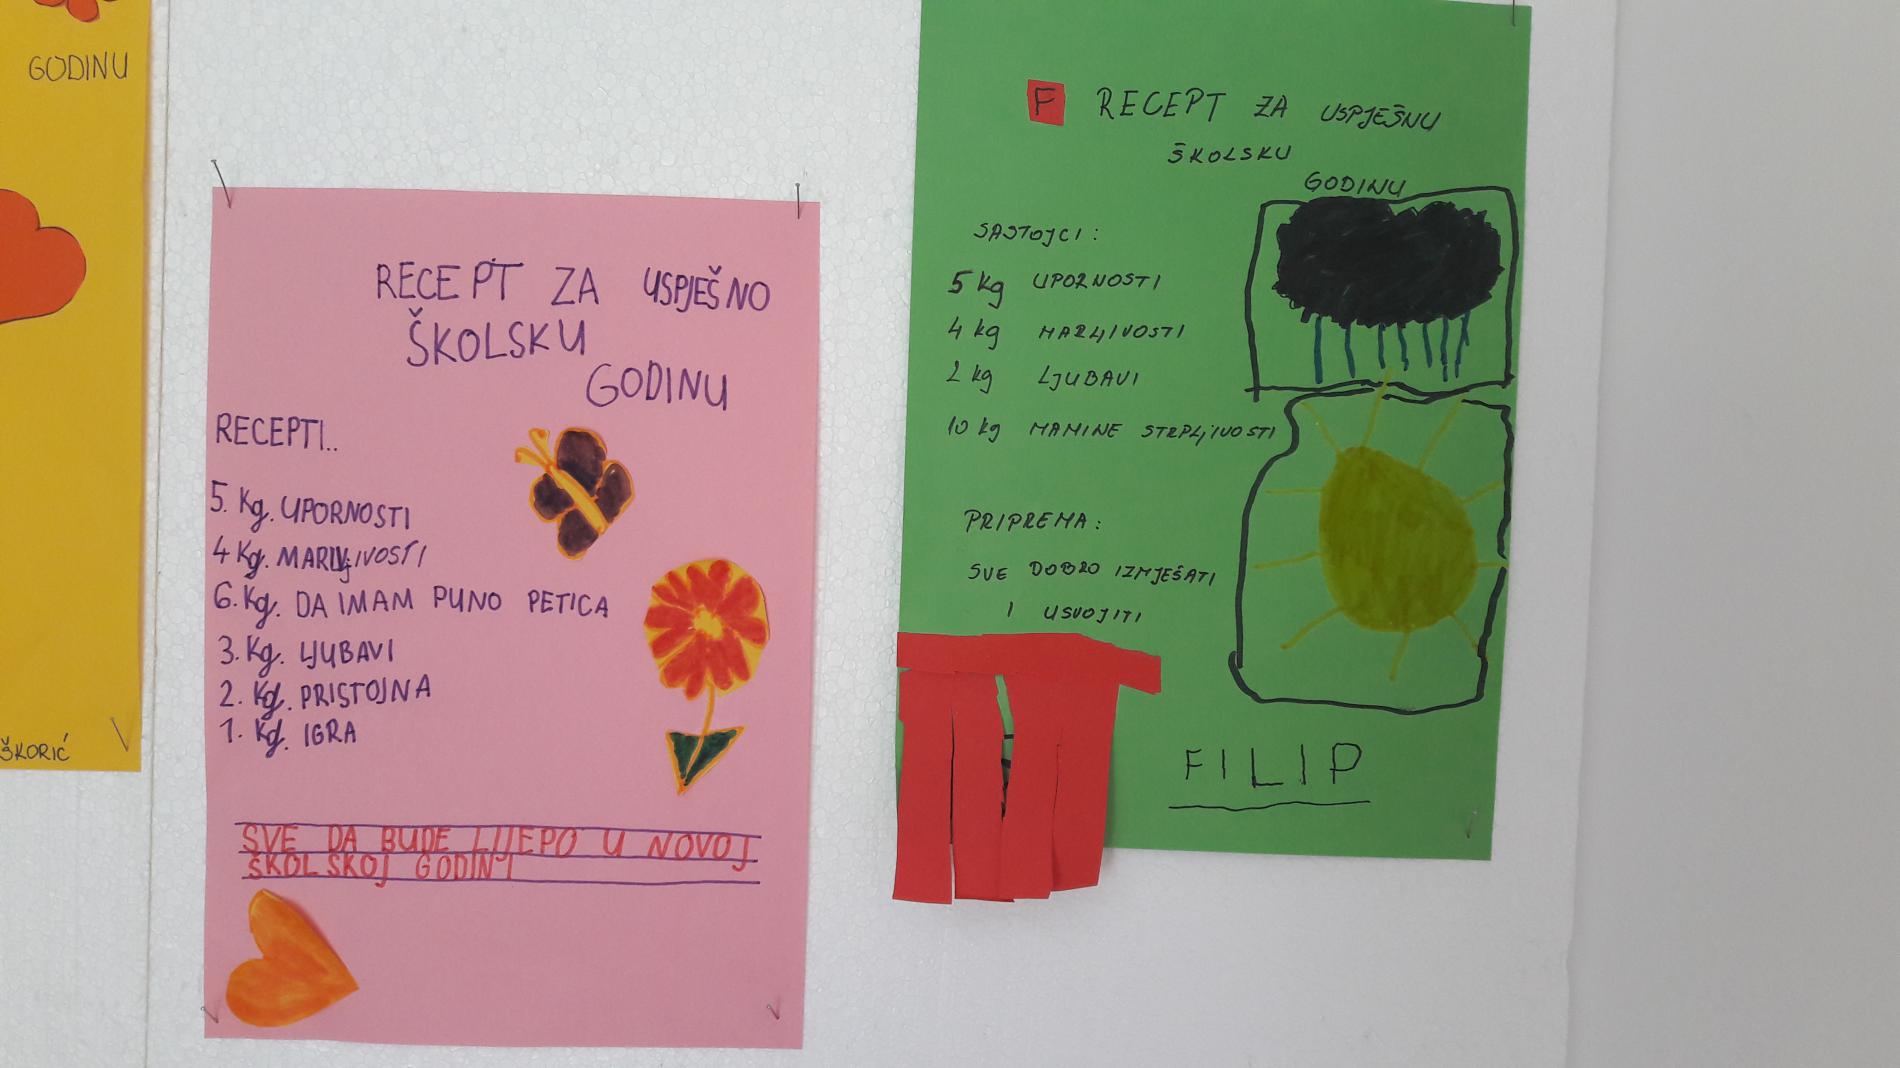 GODINU
ŠKORIĆ
RECEPT ZA USPJEŠNO
ŠKOLSKU
GODINU
RECEPTI..
5. Kg. UPORNOSTI
4 Kg. MARLJIVOSTI
6. Kg. DA IMAM PUNO PETICA
3. Kg. LJUBAVI
2. Kg. PRISTOJNA
1. Kg. IGRA
SVE DA BUDE LIJEPO U NOVOJ
ŠKOLSKOJ GODINI
F RECEPT ZA USPJEŠNU
ŠKOLSKU
GODINU
SASTOJCI:
5 kg UPORNOSTI
4 kg MARLJIVOSTI
2 kg LJUBAVI
10 kg MAMINE STRPLJIVOSTI
PRIPREMA:
SVE DOBRO IZMJEŠATI
I USVOJITI
FILIP